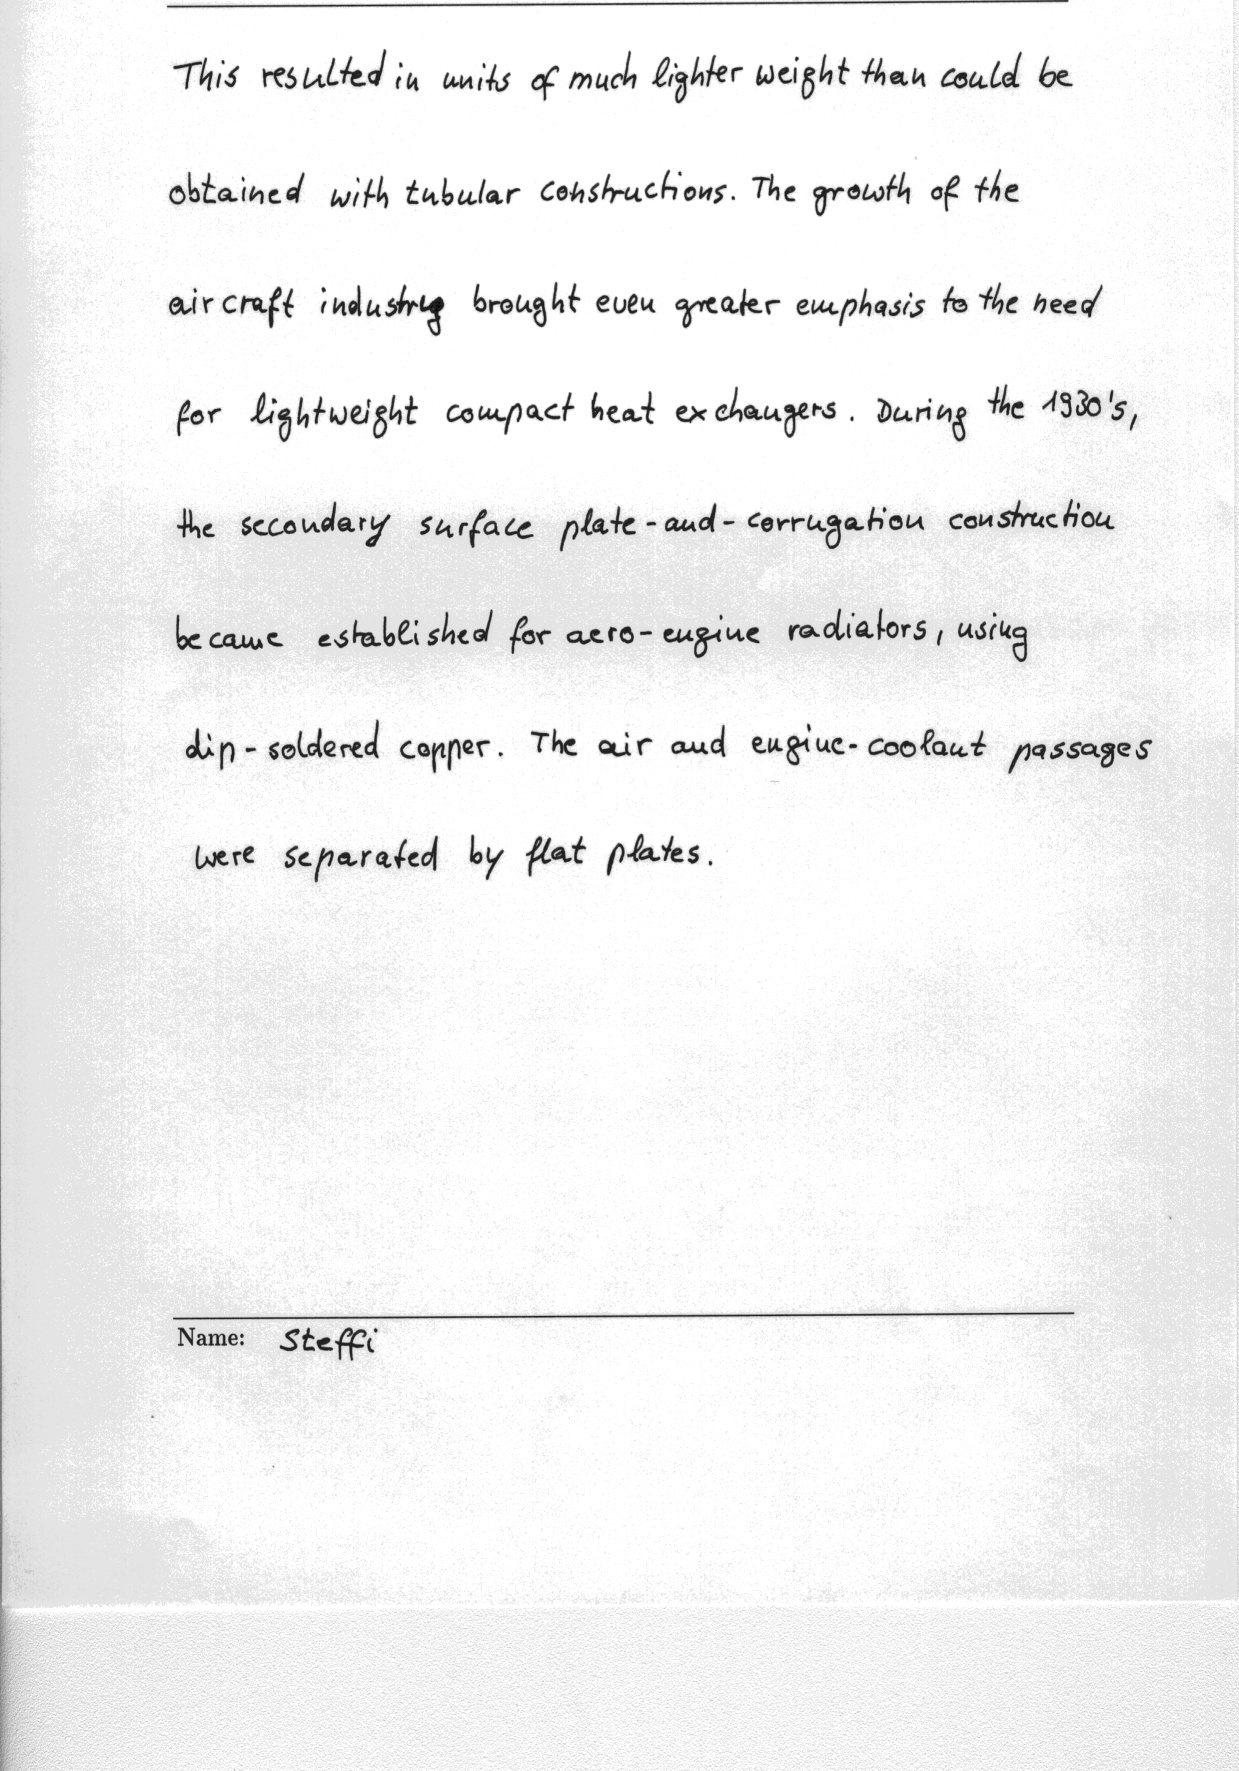 This resulted in units of much lighter weight than could be
obtained with tubular constructions. The growth of the
aircraft industry brought even greater emphasis to the need
for lightweight compact heat exchangers. During the 1930's,
the secondary surface plate-and-corrugation construction
became established for aero-engine radiators, using
dip-soldered copper. The air and engine-coolant passages
were separated by flat plates.
Name: Steffi